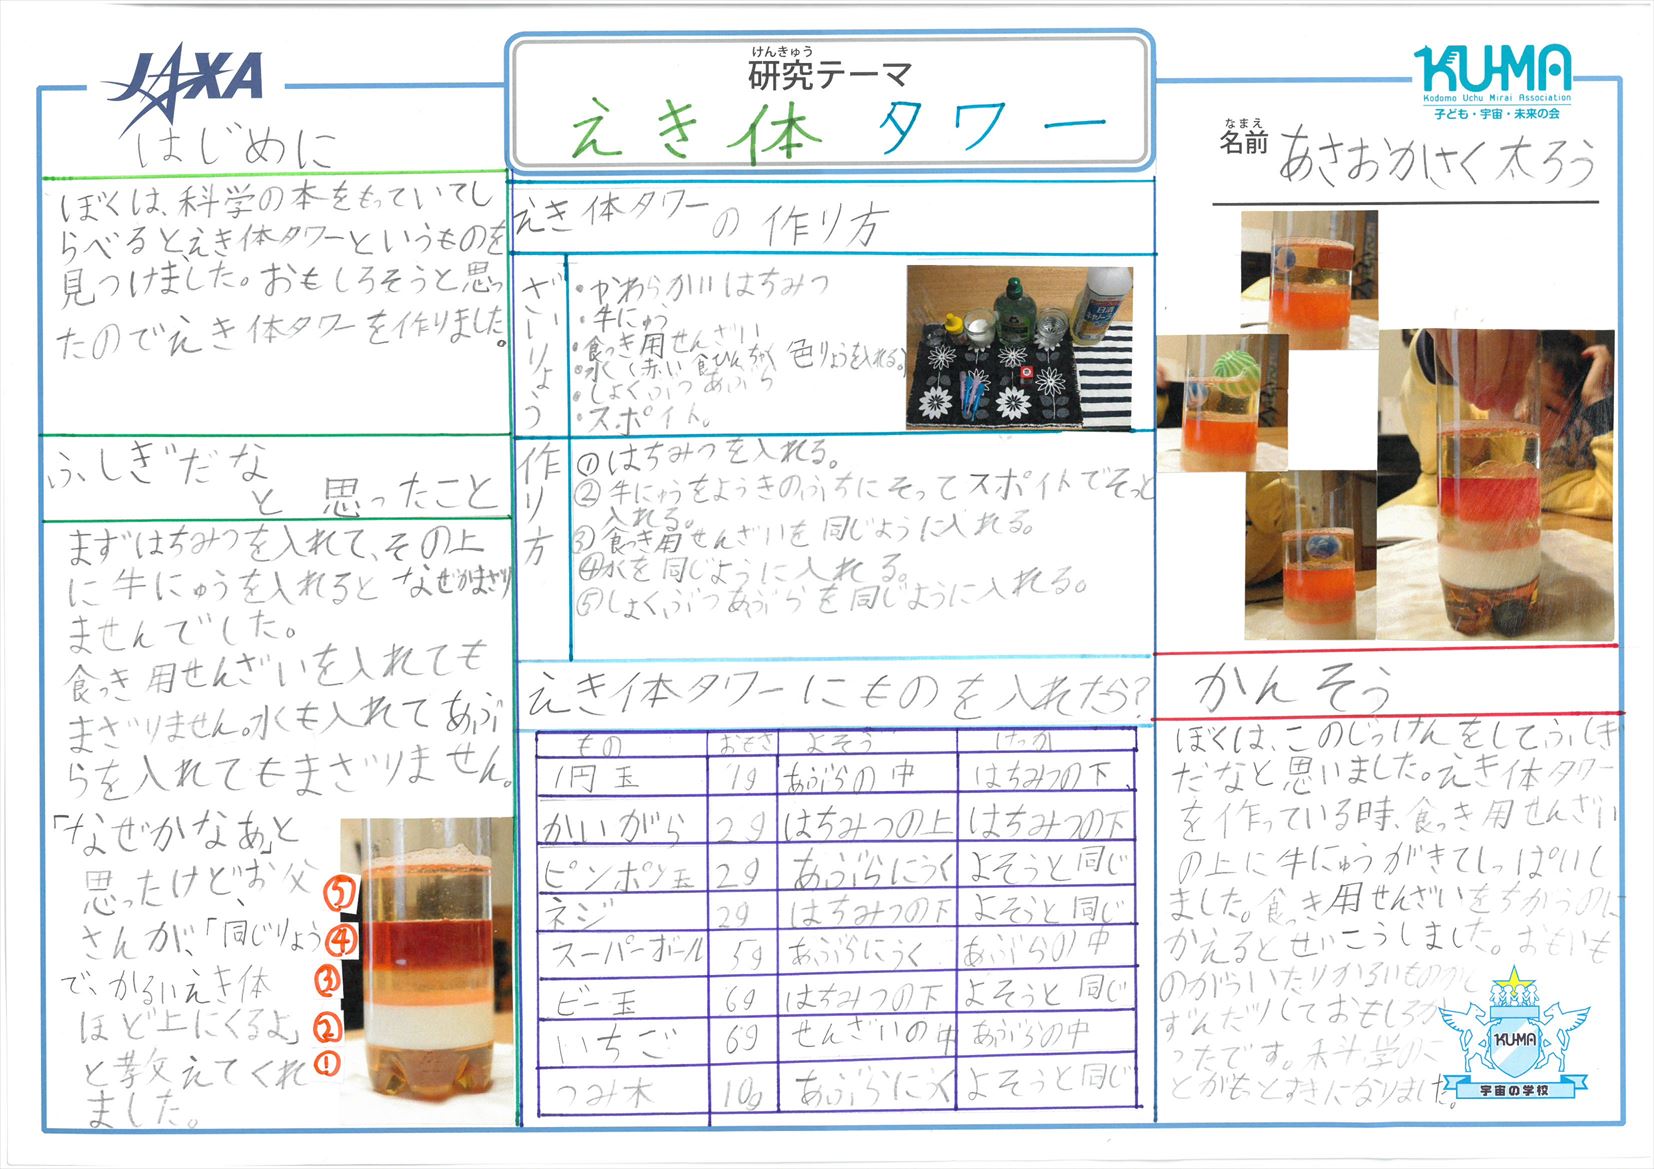 JAXA
けんきゅう
研究テーマ
えき体タワー
KUMA
Kodomo Uchu Mirai Association
子ども・宇宙・未来の会
なまえ
名前 あさおかさく太ろう
はじめに
ぼくは、科学の本をもっていてし
らべるとえき体タワーというものを
見つけました。おもしろそうと思っ
たのでえき体タワーを作りました。
ふしぎだな
と思ったこと
まずはちみつを入れて、その上
に牛にゅうを入れるとなぜかまざり
ませんでした。
食っき用せんざいを入れても
まざりません。水も入れてあぶ
らを入れてもまざりません。
「なぜかなあ」と
思ったけどお父
さんが、「同じりょう
で、かるいえき体
ほど上にくるよ」
と教えてくれ
ました。
⑤
④
③
②
①
えき体タワーの作り方
ざいりょう
・やわらかいはちみつ
・牛にゅう
・食っき用せんざい
・水(赤い食ひんちゃく色りょうを入れる)
・しょくぶつあぶら
・スポイト。
作り方
①はちみつを入れる。
②牛にゅうをようきのふちにそってスポイトでそっと
入れる。
③食っき用せんざいを同じように入れる。
④水を同じように入れる。
⑤しょくぶつあぶらを同じように入れる。
えき体タワーにものを入れたら?
もの おもさ よそう けっか
1円玉 1g あぶらの中 はちみつの下
かいがら 2g はちみつの上 はちみつの下
ピンポン玉 2g あぶらにうく よそうと同じ
ネジ 2g はちみつの下 よそうと同じ
スーパーボール 5g あぶらにうく あぶらの中
ビー玉 6g はちみつの下 よそうと同じ
いちご 6g せんざいの中 あぶらの中
つみ木 10g あぶらにうく よそうと同じ
かんそう
ぼくは、このじっけんをしてふしぎ
だなと思いました。えき体タワー
を作っている時、食っき用せんざい
の上に牛にゅうがきてしっぱいし
ました。食っき用せんざいをちがうのに
かえるとせいこうしました。おもいも
のがういたりかるいものが
ずんだりしておもしろか
ったです。科学のこ
とがもっとすきになりました。
KUMA
宇宙の学校